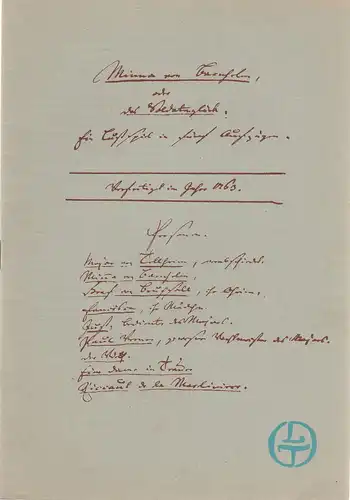 Minna von Barnhelm,
oder
das Soldatenglück.
Ein Lustspiel in fünf Aufzügen.
Verfertiget im Jahre 1763.
Personen.
Major von Tellheim, verabschiedet.
Minna von Barnhelm,
Graf von Bruchsall, ihr Oheim.
Franziska, ihr Mädchen.
Just, Bedienter des Majors.
Paul Werner, gewesener Wachtmeister des Majors.
der Wirt.
Eine Dame in Trauer
Riccaut de la Marliniere.
LT